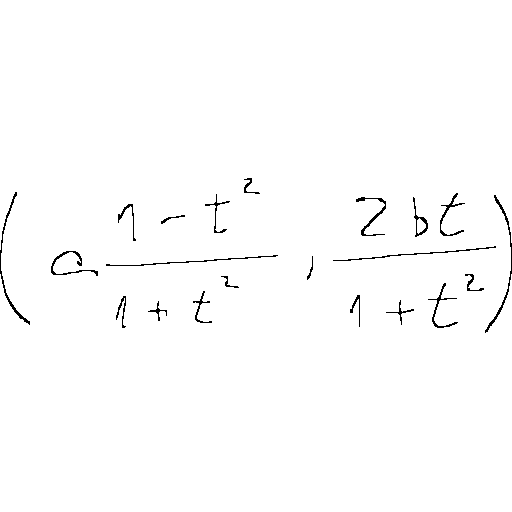 \left( a \frac{1-t^2}{1+t^2}, \frac{2bt}{1+t^2} \right)